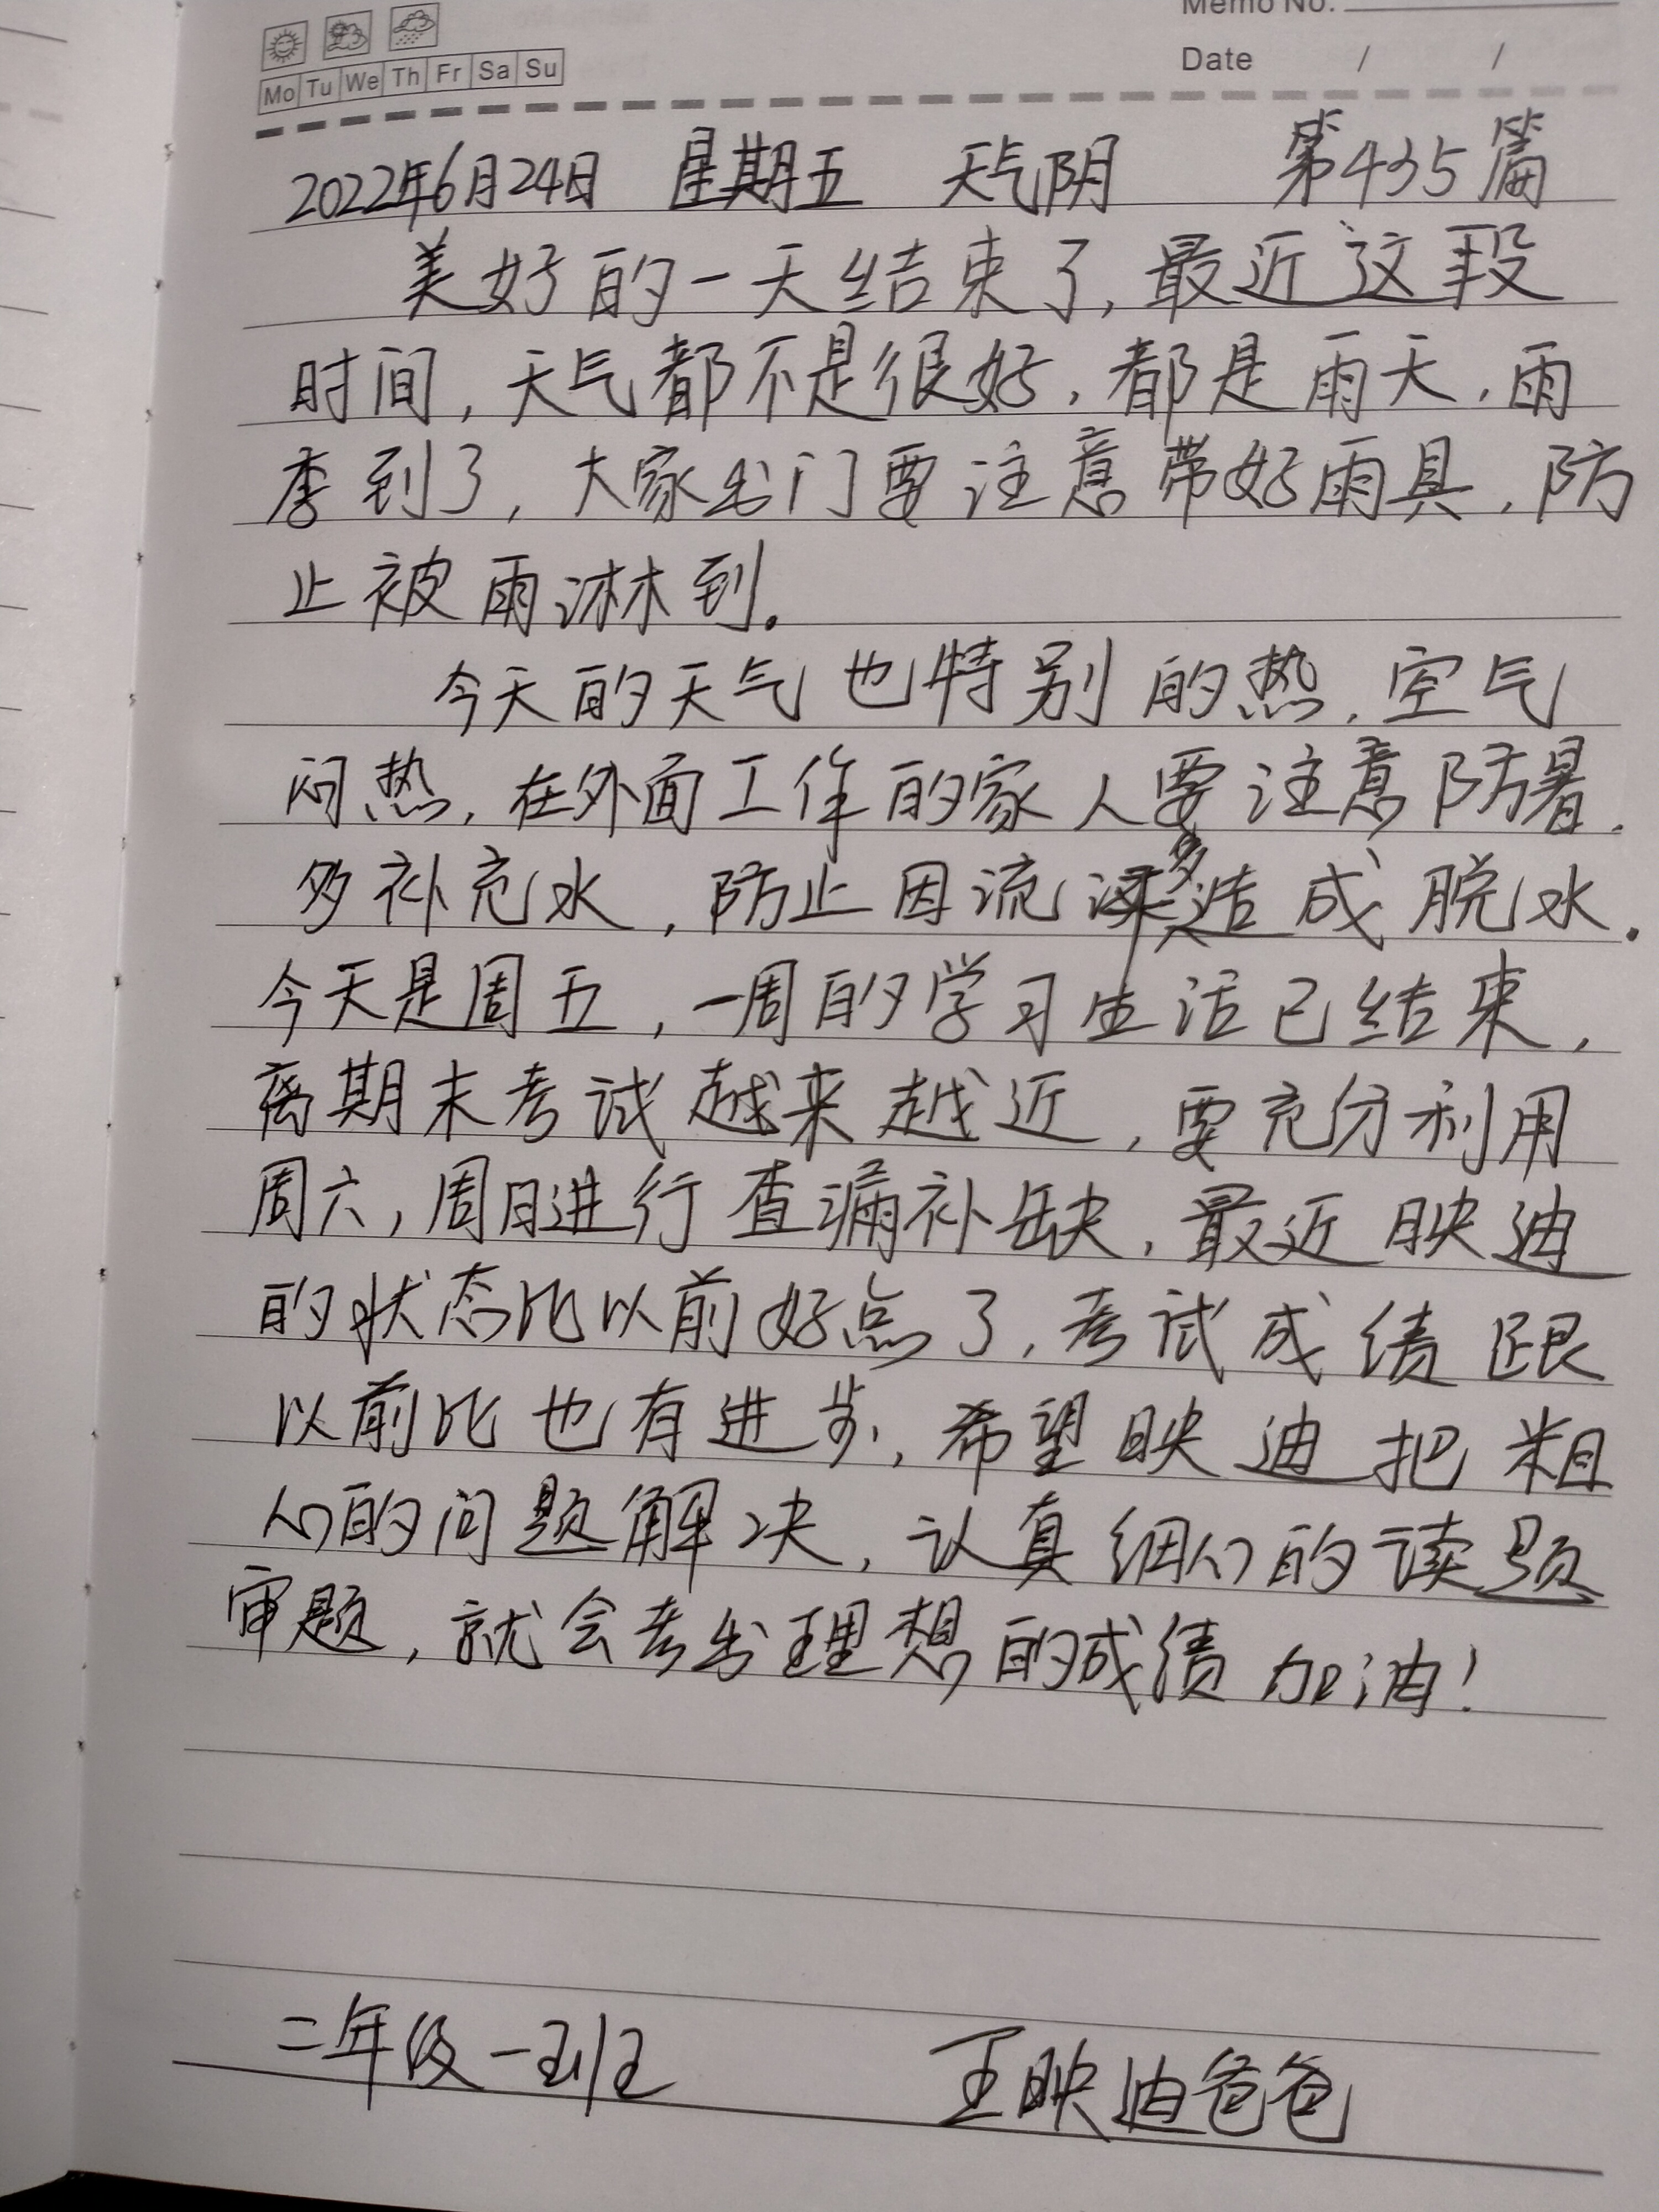 Memo No.
Date / /
Mo Tu We Th Fr Sa Su
2022年6月24日 星期五 天气阴 第435篇
美好的一天结束了,最近这段
时间,天气都不是很好,都是雨天,雨
季到了,大家出门要注意带好雨具,防
止被雨淋到。
今天的天气也特别的热,空气
闷热,在外面工作的家人要注意防暑,
多补充水,防止因流汗多造成脱水。
今天是周五,一周的学习生活已结束,
离期末考试越来越近,要充分利用
周六,周日进行查漏补缺,最近映迪
的状态比以前好点了,考试成绩跟
以前比也有进步,希望映迪把粗
心的问题解决,认真细心的读题
审题,就会考出理想的成绩加油!
二年级一班 王映迪爸爸